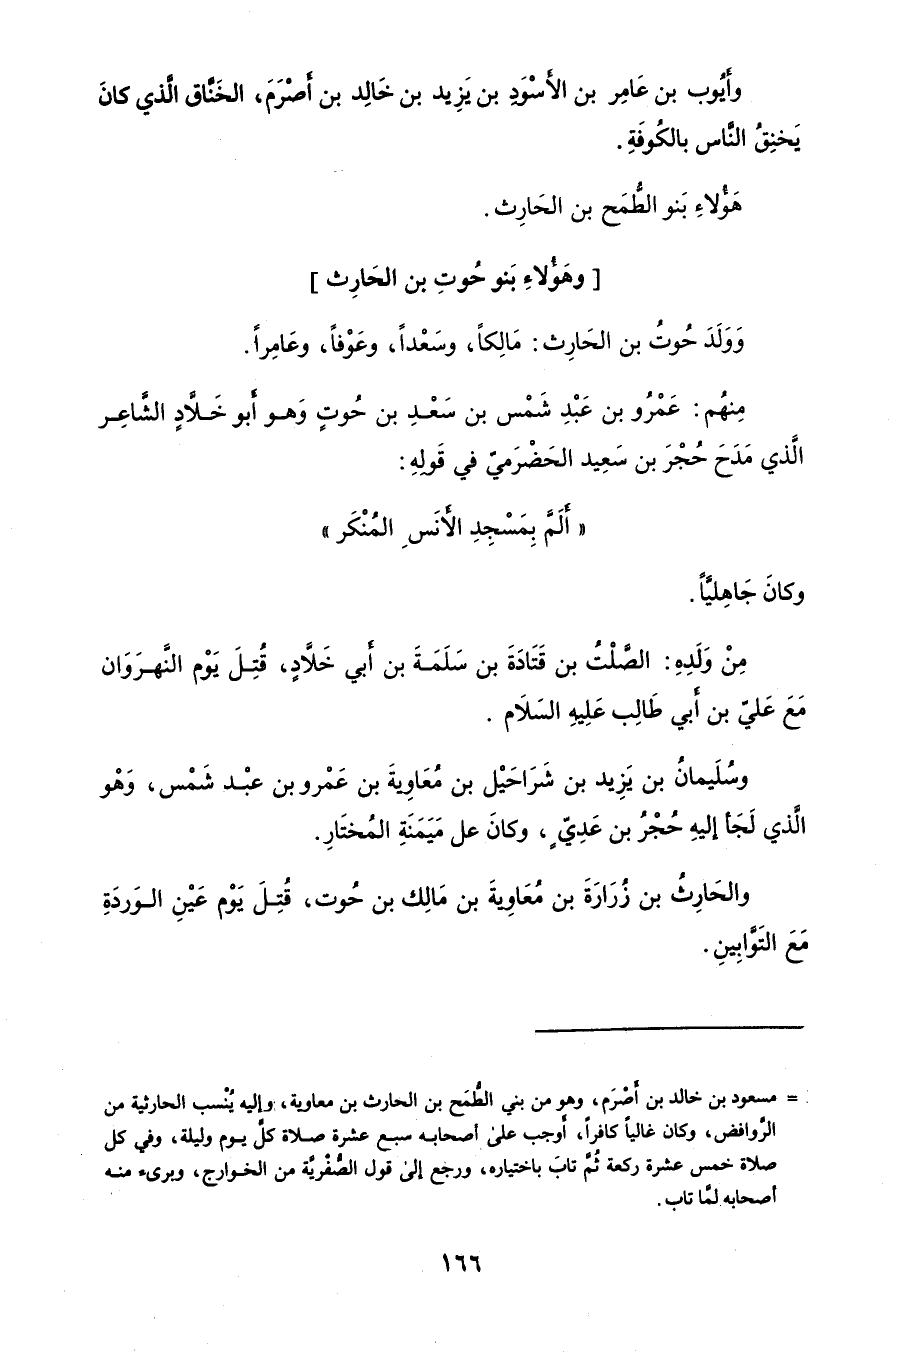 وأَيُّوب بن عَامِر بن الأَسْوَدِ بن يَزِيد بن خَالِد بن أَصْرَمَ، الخَنَّاق الَّذي كانَ
يَخنِقُ النَّاس بالكُوفَةِ.
هَؤُلاءِ بَنو الطُّمَح بن الحَارِث.
[ وهَؤُلاءِ بَنو حُوتِ بن الحَارِث ]
وَوَلَدَ حُوتُ بن الحَارِث: مَالِكاً، وسَعْداً، وعَوْفاً، وعَامِراً.
مِنهُم: عَمْرُو بن عَبْدِ شَمْس بن سَعْـدِ بن حُوتٍ وَهـو أَبو خَـلَّادٍ الشَّاعِـر
الَّذي مَدَحَ حُجْرَ بن سَعِيد الحَضْرَميّ في قَولِهِ:
« أَلَمَّ بِمَسْجِدِ الأَنَسِ المُنْكَر »
وكانَ جَاهِليَّاً.
مِنْ وَلَدِهِ: الصَّلْتُ بن قَتَادَةَ بن سَلَمَـةَ بن أَبي خَلَّادٍ، قُتِـلَ يَوْم النَّهـرَوَان
مَعَ عَليّ بن أَبي طَالِب عَلَيهِ السَلَام .
وسُلَيمانُ بن يَزِيد بن شَرَاحَيْل بن مُعَاوِيةَ بن عَمْرو بن عبْـد شَمْس، وَهْو
الَّذي لَجَأ إليهِ حُجْرُ بن عَدِيّ ٍ، وكانَ عل مَيَمَنَةِ المُختَارِ.
والحَارِثُ بن زُرَارَةَ بن مُعَاوِيةَ بن مَالِك بن حُوت، قُتِـلَ يَوْم عَيْنِ الـوَردَةِ
مَعَ التَوَّابِينِ.
= مسعود بن خالد بن أَصْرَم، وهو من بني الطُّمَح بن الحارث بن معاوية، وإليه يُنْسب الحارثية من
الرَّوافض، وكان غالياً كافراً، أَوجب علىٰ أصحابـه سبـع عشرة صـلاة كلَّ يـوم وليلة، وفي كل
صلاة خمس عشرة ركعة ثُمَّ تابَ باختياره، ورجع إلىٰ قول الصُّفْريَّة من الخـوارج، وبرىء منـه
أصحابه لمَّا تاب.
١٦٦